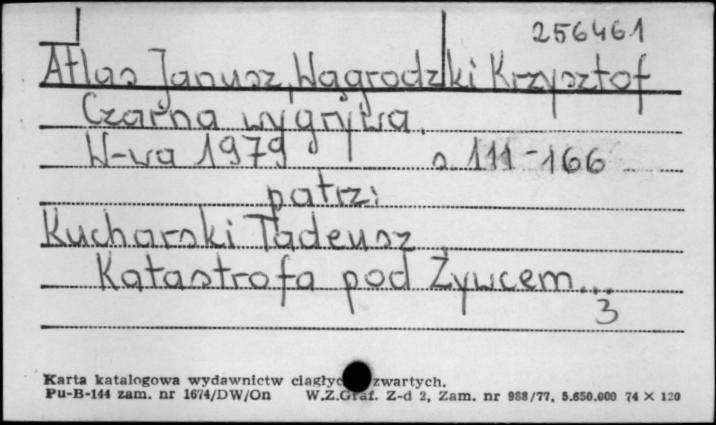 256461
Atlas Janusz, Wągrodzki Krzysztof
Czarna wygrywa.
W-wa 1979 s. 111-166
patrz:
Kucharski Tadeusz
Katastrofa pod Żywcem...
3
Karta katalogowa wydawnictw ciągłyc zwartych.
Pu-B-144 zam. nr 1674/DW/On W.Z.Graf. Z-d 2, Zam. nr 988/77, 5.650.000 74 × 120